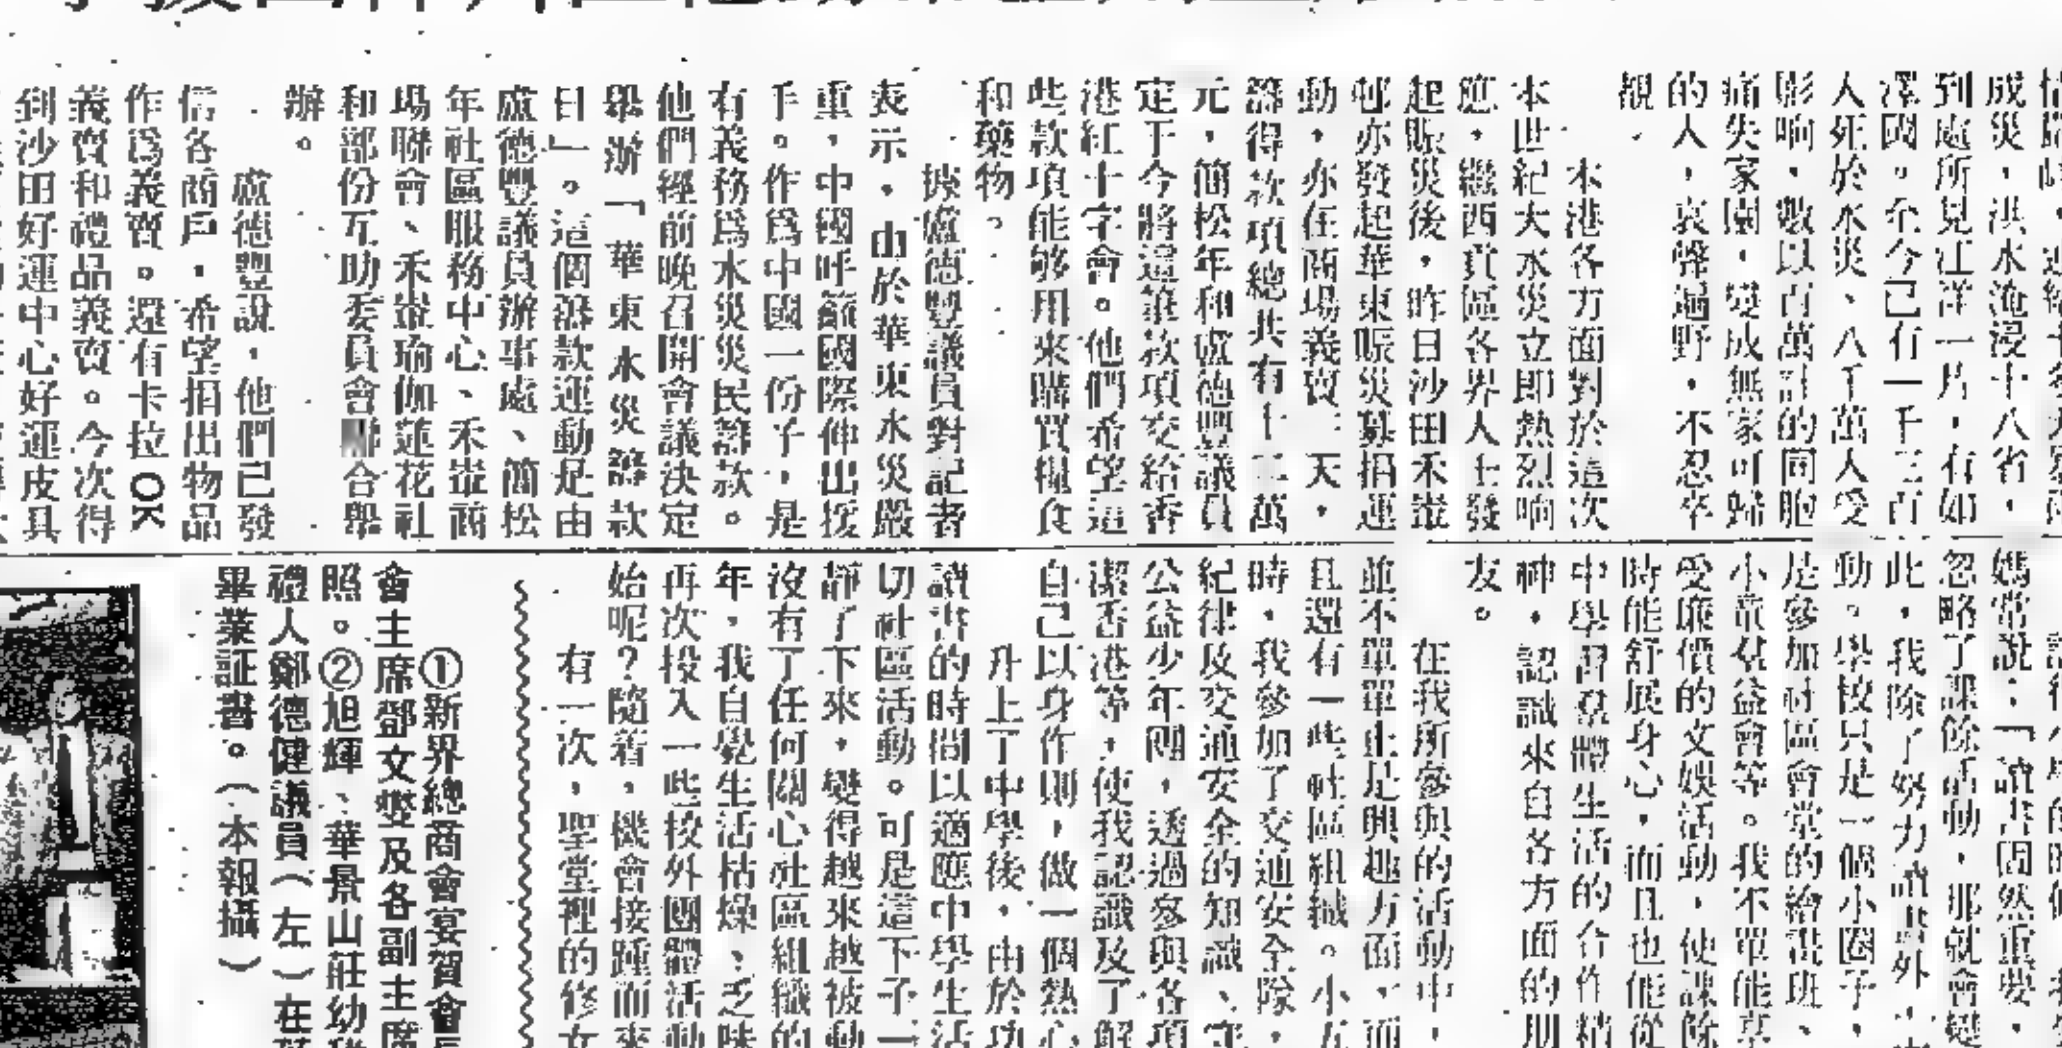 成災，洪水淹浸十八省，
到處所見汪洋一片，有如
澤國。至今已有一千三百
人死於水災、八千萬人受
影响，數以百萬計的同胞
痛失家園，變成無家可歸
的人，哀聲遍野，不忍卒
覩。
本港各方面對於這次
本世紀大水災立即熱烈响
應，繼西貢區各界人士發
起賑災後，昨日沙田禾輋
邨亦發起華東賑災募捐運
動，亦在商場義賣一天，
籌得款項總共有十二萬
元，簡松年和盧德豐議員
定于今將這筆款項交給香
港紅十字會。他們希望這
些款項能够用來購買糧食
和藥物。
據盧德豐議員對記者
表示，由於華東水災嚴
重，中國呼籲國際伸出援
手。作爲中國一份子，是
有義務爲水災災民籌款。
他們經前晚召開會議決定
舉辦「華東水災籌款
日」。這個籌款運動是由
盧德豐議員辦事處、簡松
年社區服務中心、禾輋商
場聯會、禾輋瑜伽蓮花社
和部份互助委員會聯合舉
辦。
盧德豐說，他們已發
信各商戶，希望捐出物品
作爲義賣。還有卡拉OK
義賣和禮品義賣。今次得
到沙田好運中心好運皮具
媽常說：「讀書固然重要，
忽略了課餘活動，那就會變
此，我除了努力讀書外，
動。學校只是一個小圈子，
是參加社區會堂的繪畫班、
小童羣益會等。我不單能享
受廉價的文娛活動，使課餘
時能舒展身心，而且也能從
中學習羣體生活的合作精
神，認識來自各方面的朋
友。
在我所參與的活動中，
並不單單止是興趣方面，而
且還有一些社區組織。小五
時，我參加了交通安全隊，
紀律及交通安全的知識、守
公益少年團，透過參與各項
潔香港等，使我認識及了解
自己以身作則，做一個熱心
升上了中學後，由於功
讀書的時間以適應中學生活
切社區活動。可是這下子一
靜了下來，變得越來越被動
沒有了任何關心社區組織的
年，我自覺生活枯燥、乏味
再次投入一些校外團體活動
始呢？隨着，機會接踵而來
有一次，聖堂裡的修女
①新界總商會宴賀會長
會主席鄧文燮及各副主席
照。②旭輝、華景山莊幼稚
禮人鄭德健議員（左）在
畢業証書。（本報攝）